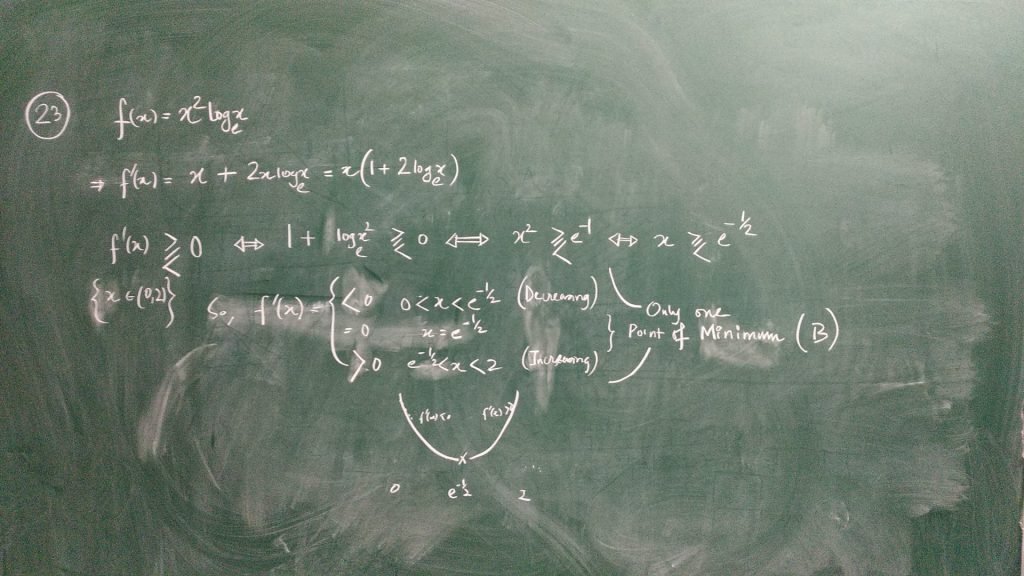 23 f(x) = x² logₑx
⇒ f'(x) = x + 2x logₑx = x(1 + 2 logₑx)
f'(x) ⪌ 0 ⇔ 1 + logₑx² ⪌ 0 ⇔ x² ⪌ e⁻¹ ⇔ x ⪌ e^{-1/2}
{x ∈ (0,2)}
So, f'(x) = { < 0 0 < x < e^{-1/2} (Decreasing)
= 0 x = e^{-1/2}
> 0 e^{-1/2} < x < 2 (Increasing)
Only one
Point of Minimum (B)
f'(x)<0 f'(x)>0
x
0 e^{-1/2} 2